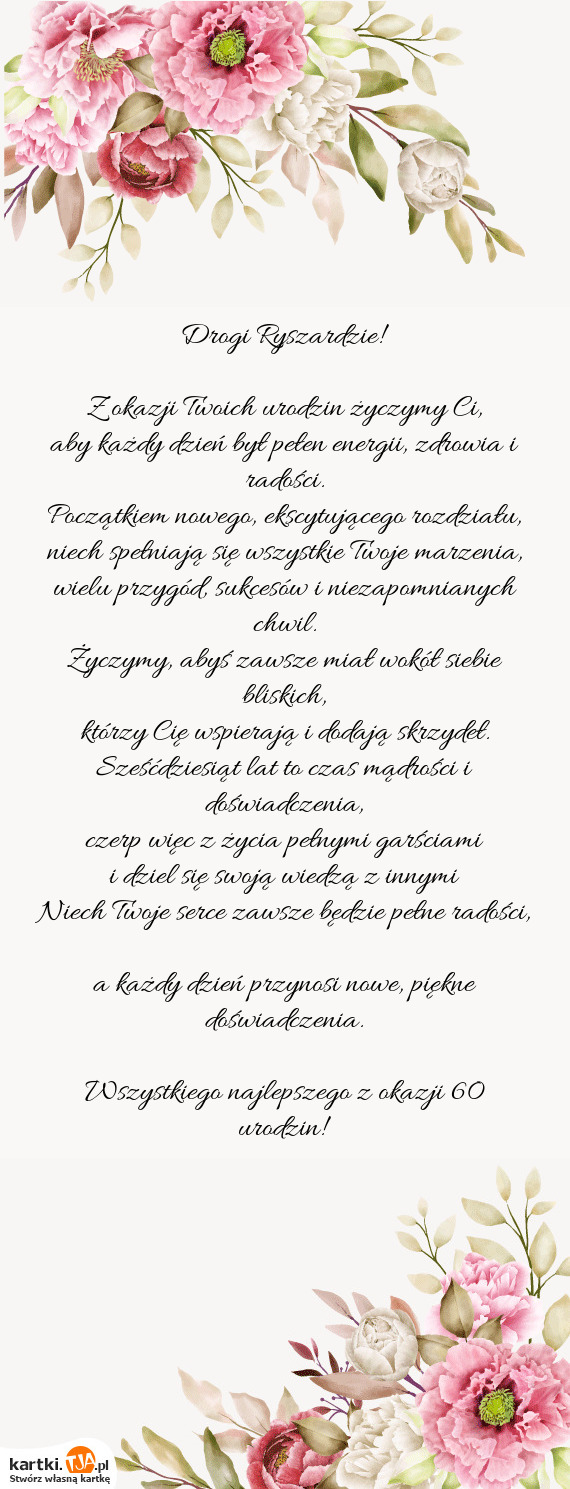 Drogi Ryszardzie!
Z okazji Twoich urodzin życzymy Ci,
aby każdy dzień był pełen energii, zdrowia i
radości.
Początkiem nowego, ekscytującego rozdziału,
niech spełniają się wszystkie Twoje marzenia,
wielu przygód, sukcesów i niezapomnianych
chwil.
Życzymy, abyś zawsze miał wokół siebie
bliskich,
którzy Cię wspierają i dodają skrzydeł.
Sześćdziesiąt lat to czas mądrości i
doświadczenia,
czerp więc z życia pełnymi garściami
i dziel się swoją wiedzą z innymi
Niech Twoje serce zawsze będzie pełne radości,
a każdy dzień przynosi nowe, piękne
doświadczenia.
Wszystkiego najlepszego z okazji 60
urodzin!
kartki.TJA.pl
Stwórz własną kartkę